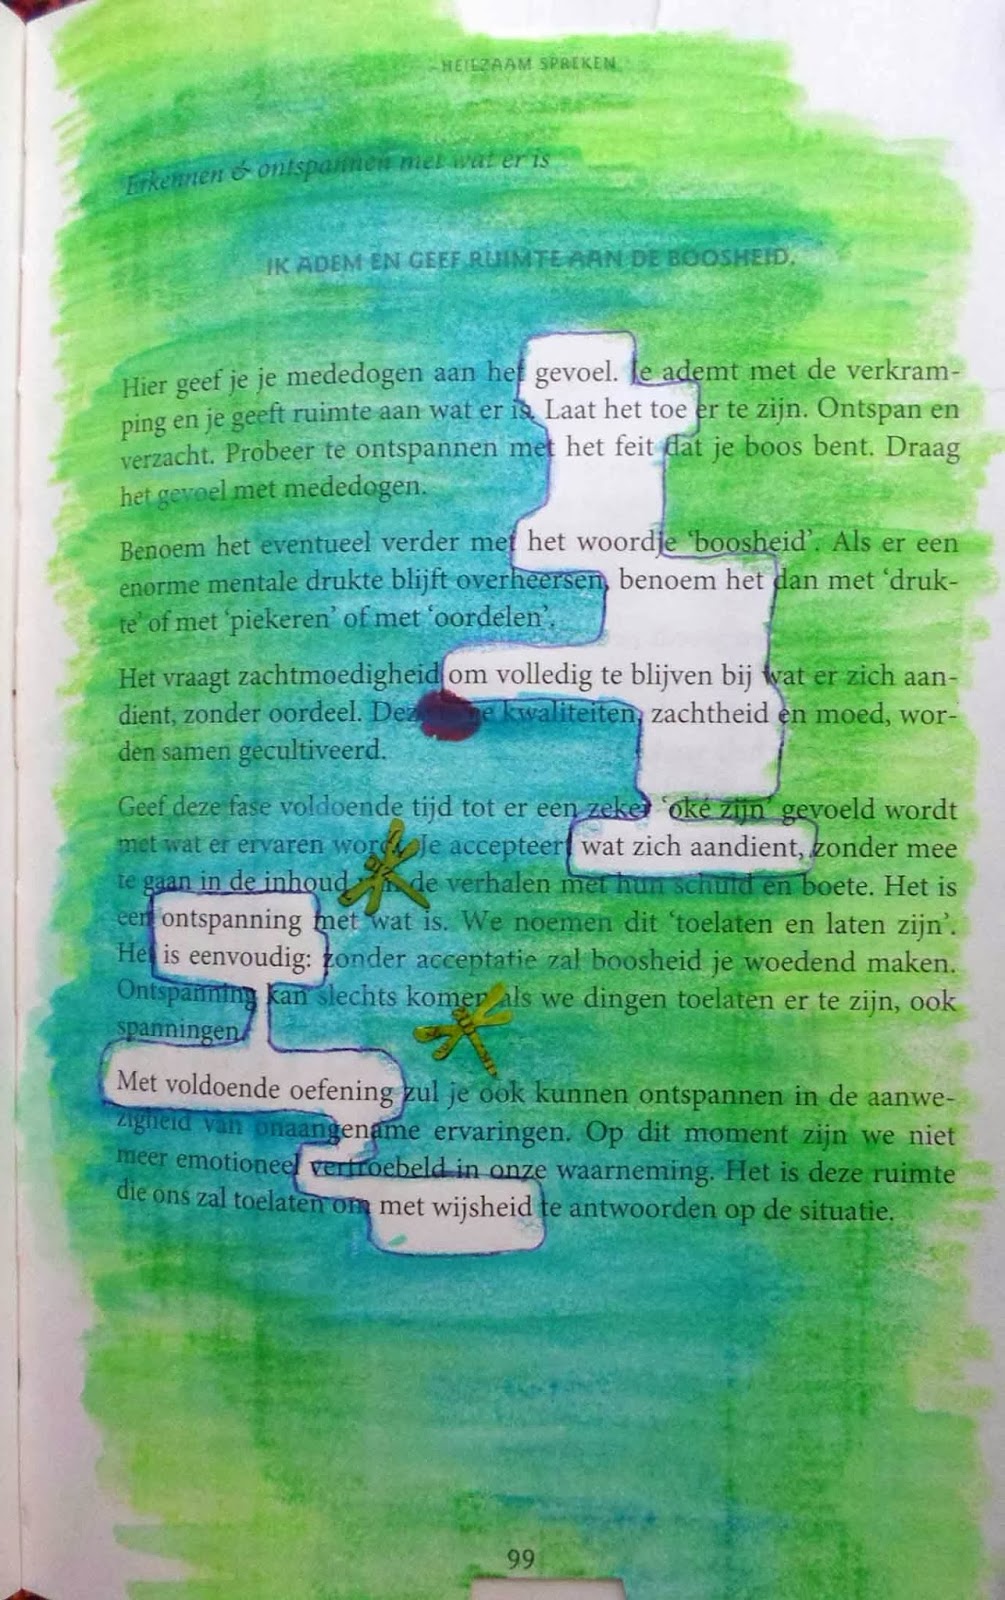 HEILZAAM SPREKEN
Erkennen & ontspannen met wat er is
IK ADEM EN GEEF RUIMTE AAN DE BOOSHEID.
Hier geef je je mededogen aan het gevoel. Je ademt met de verkram-
ping en je geeft ruimte aan wat er is. Laat het toe er te zijn. Ontspan en
verzacht. Probeer te ontspannen met het feit dat je boos bent. Draag
het gevoel met mededogen.
Benoem het eventueel verder met het woordje ‘boosheid’. Als er een
enorme mentale drukte blijft overheersen, benoem het dan met ‘druk-
te’ of met ‘piekeren’ of met ‘oordelen’.
Het vraagt zachtmoedigheid om volledig te blijven bij wat er zich aan-
dient, zonder oordeel. Deze kwaliteiten, zachtheid en moed, wor-
den samen gecultiveerd.
Geef deze fase voldoende tijd tot er een zeker ‘oké zijn’ gevoeld wordt
met wat er ervaren wordt. Je accepteert wat zich aandient, zonder mee
te gaan in de inhoud van de verhalen met hun schuld en boete. Het is
een ontspanning met wat is. We noemen dit ‘toelaten en laten zijn’.
Het is eenvoudig: zonder acceptatie zal boosheid je woedend maken.
Ontspanning kan slechts komen als we dingen toelaten er te zijn, ook
spanningen.
Met voldoende oefening zul je ook kunnen ontspannen in de aanwe-
zigheid van onaangename ervaringen. Op dit moment zijn we niet
meer emotioneel vertroebeld in onze waarneming. Het is deze ruimte
die ons zal toelaten om met wijsheid te antwoorden op de situatie.
99